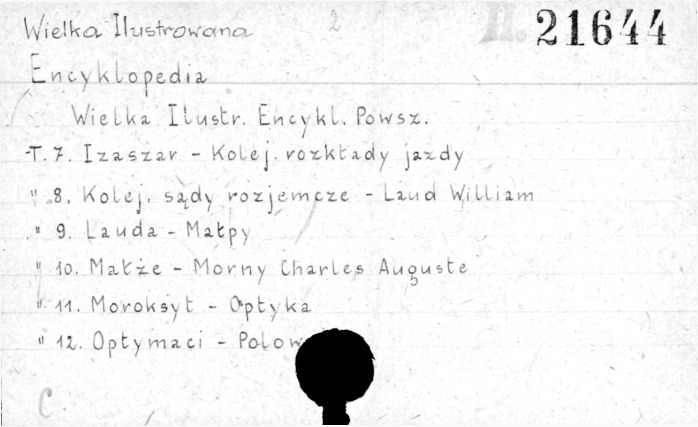 Wielka Ilustrowana
2
II. 21644
Encyklopedia
Wielka Ilustr. Encykl. Powsz.
T. 7. Izaszar – Kolej. rozkłady jazdy
" 8. Kolej. sądy rozjemcze – Laud William
" 9. Lauda – Małpy
" 10. Małże – Morny Charles Auguste
" 11. Moroksyt – Optyka
" 12. Optymaci –
C.